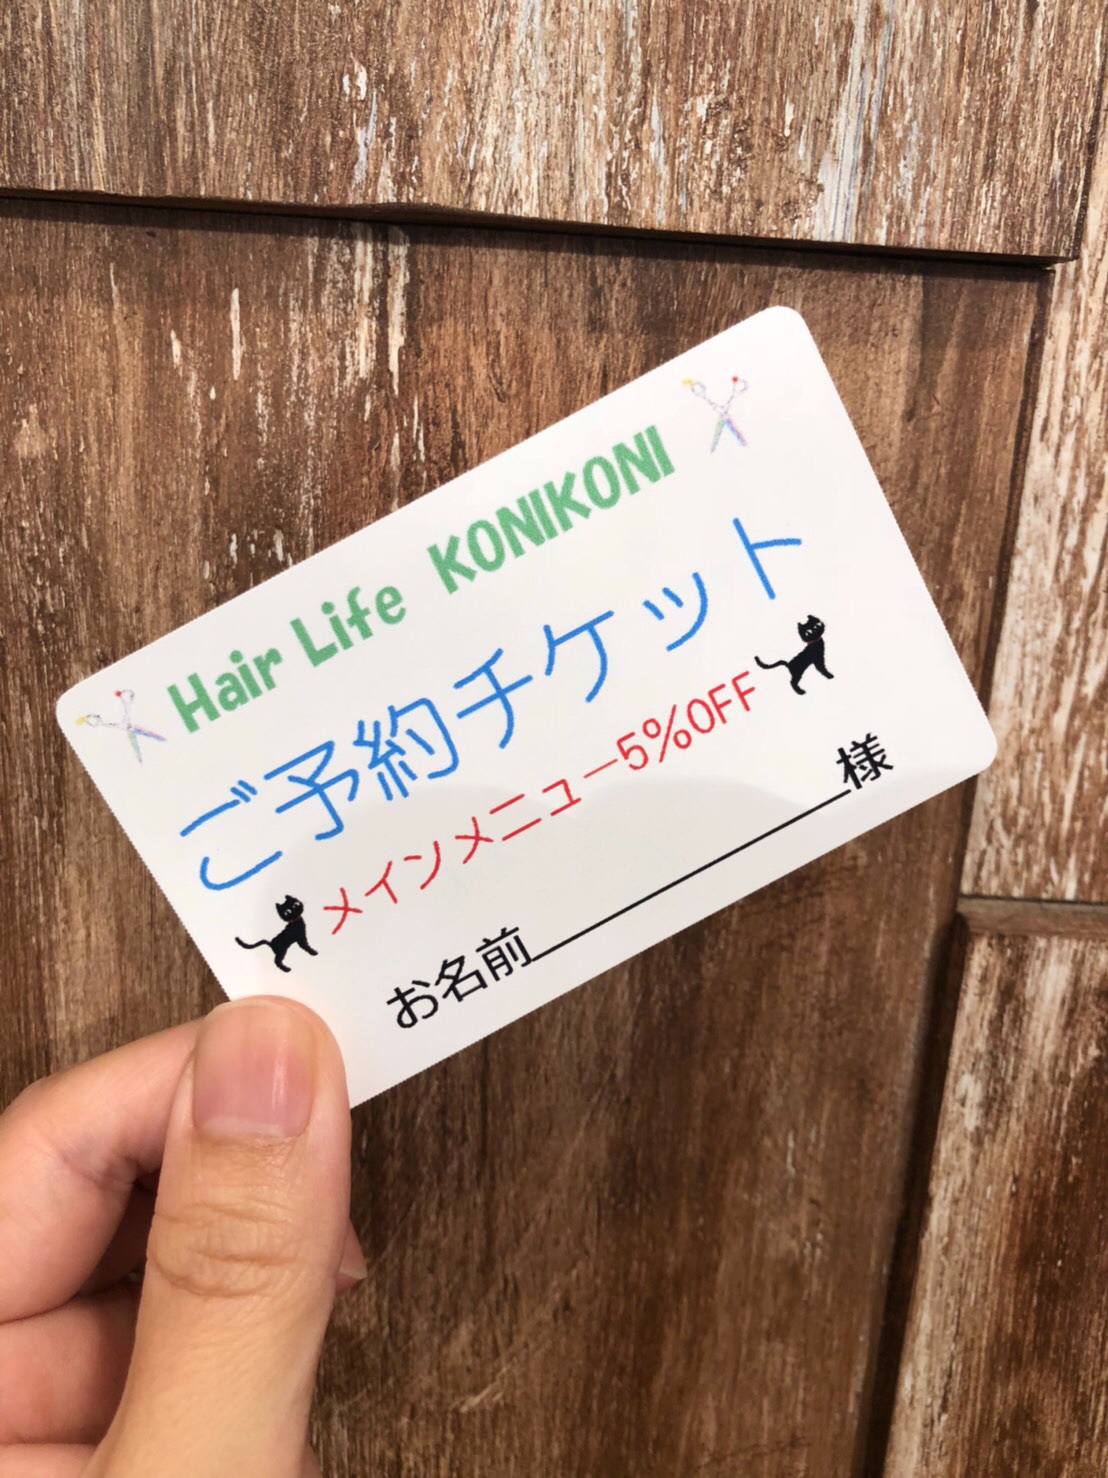 Hair Life KONIKONI
ご予約チケット
メインメニュー5%OFF
お名前＿＿＿＿＿＿＿＿様